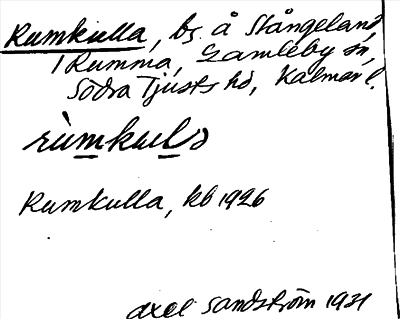 Rumkulla, bs. å Stångeland,
/ Rumma, Gamleby sn,
Södra Tjusts hd, Kalmar l.
rùmkulɔ
Rumkulla, kb 1926
Axel Sandström 1931